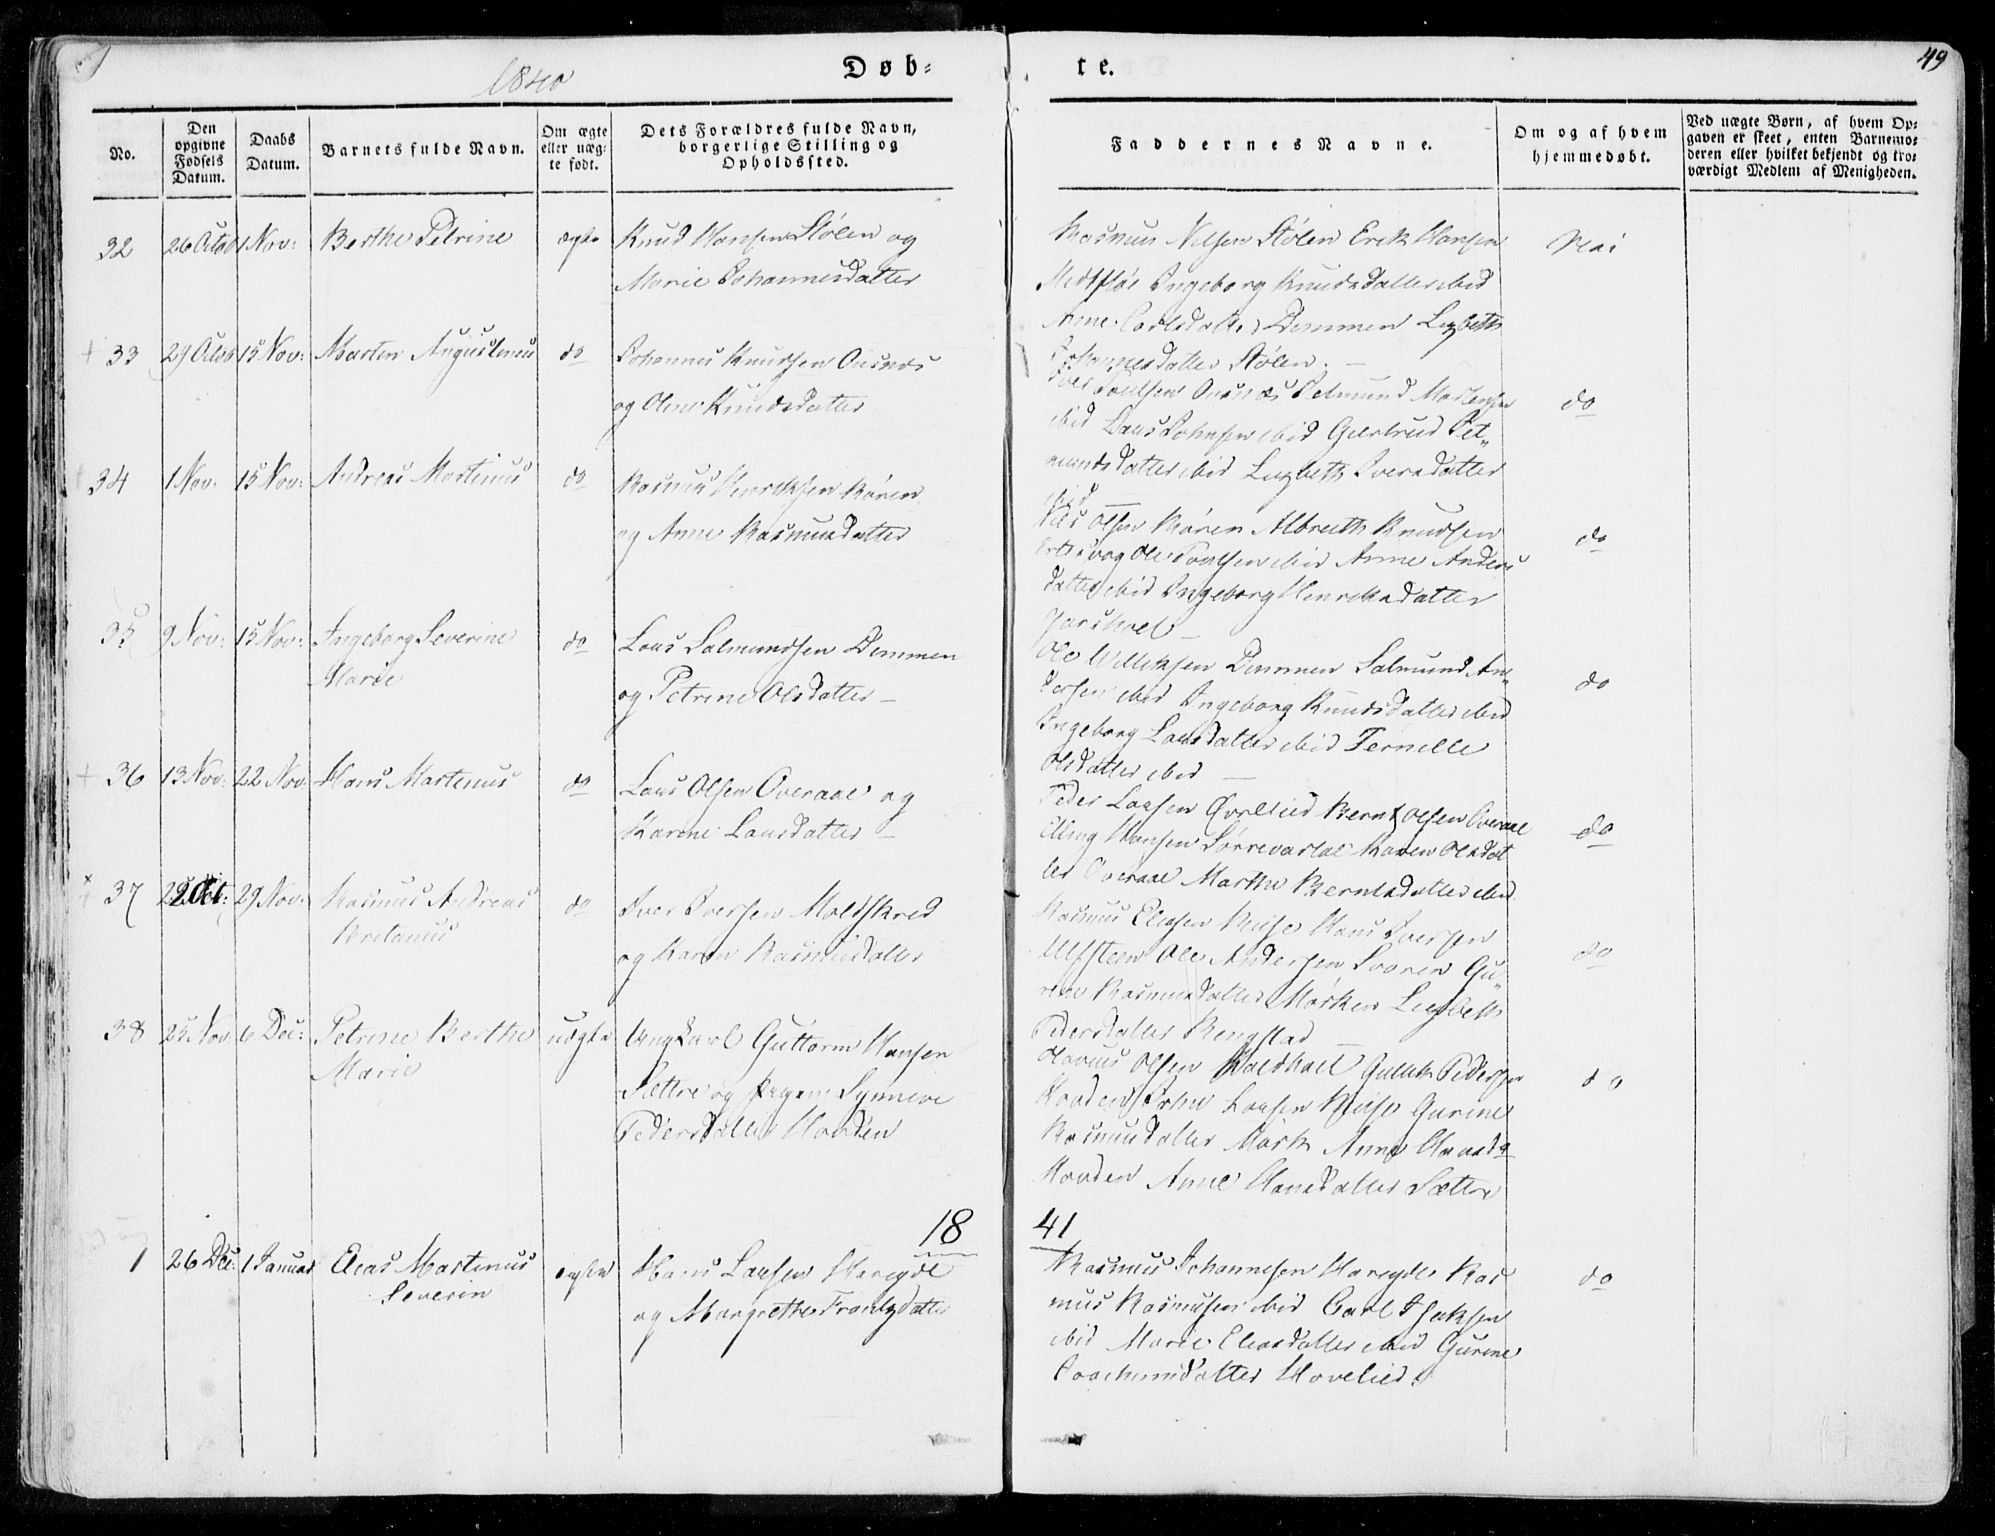 49
1840
Døb=
te.
No.
Den opgivne Fødsels Datum.
Daabs Datum.
Barnets fulde Navn.
Om ægte eller uæg= te født.
Dets Forældres fulde Navn, borgerlige Stilling og Opholdssted.
Faddernes Navne.
Om og af hvem hjemmedøbt.
Ved uægte Børn, af hvem Op= gaven er skeet, enten Barnemo= deren eller hvilket bekjendt og tro= værdigt Medlem af Menigheden.
32 26 Octob 1 Nov: Berthe Petrine ægte Knud Hansen Stølen og
Marie Johannesdatter
Rasmus Nilsen Stølen Erik Hansen Nei
Ingeborg Knudsdatter ibid
Anne Carlsdatter Demmen Lizbeth
Johannesdatter Stølen.
33 29 Octob 15 Nov: Marten Augustinus do Johannes Knudsen Ousnæs
og Oline Knudsdatter
Iver Poulsen Ousnæs Salmund Martensen do
ibid Lars Johnsen ibid Gertrud Sal„
mundsdatter ibid Lizbeth Iversdatter
ibid
34 1 Nov: 15 Nov: Andreas Martinus do Rasmus Henriksen Røren
og Anne Rasmusdatter
Nils Olsen Røren Albreth Knudsen do
Ole Poulsen ibid Anne Anders
datter ibid Ingeborg Henriksdatter
35 9 Nov: 15 Nov: Ingeborg Severine do Lars Salmundsen Demmen
Marie
og Petrine Olsdatter
Ole Demmen Salmund An„ do
dersen ibid Ingeborg Knudsdatter ibid
Ingeborg Larsdatter ibid Pernille
Olsdatter ibid
36 13 Nov: 22 Nov: Hans Martinus do Lars Olsen Overaae og
Karine Larsdatter
Peder Larsen Øvrelied Bernt Olsen Overaae do
Elling Hansen Karen Olsdat
ter Overaae Marthe Berntsdatter ibid
37 29 Nov: Rasmus Andreas do Iver Iversen Moldskred
Kristanus
og Karen Rasmusdatter
Rasmus Eliasen Hans Iversen
Ulfsteen Ole Andersen Gu„ do
rine Rasmusdatter Mørken Lizbeth
Pedersdatter Ringstad
38 25 Nov 6 Dec: Petrine Berthe uægte Ungkarl Guttorm Hansen
Marie
Sættre og Pigen Synneve
Pedersdatter Hovden
Olsen Pedersen do
Hovden John Larsen Gurine
Rasmusdatter Mørk Anne
Hovden Anne Hansdatter Sættre
18 41
1 26 Dec: 1 Januar Elias Martinus ægte Hans Larsen Hareyde
Severin
og Margrethe Frantzdatter
Rasmus Johannesen Hareyde Ras do
mus Rasmusen ibid Carl Isaksen
ibid Marie Eliasdatter ibid Gurine
Joachimsdatter Hovelied.